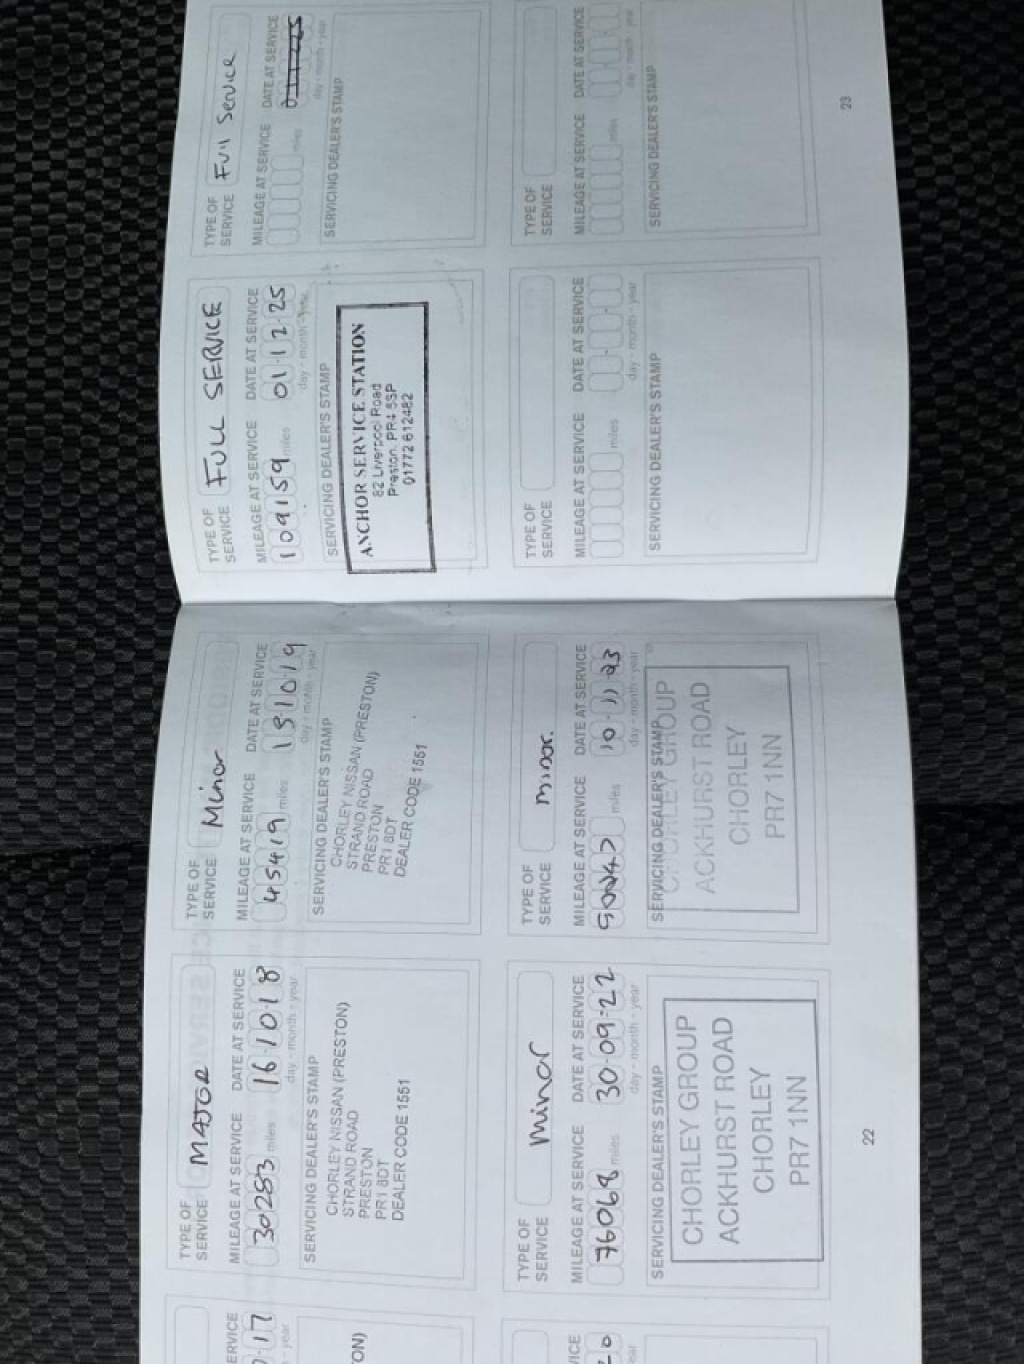 TYPE OF SERVICE MAJOR
MILEAGE AT SERVICE DATE AT SERVICE
30283 miles 16·10·18
day - month - year
SERVICING DEALER'S STAMP
CHORLEY NISSAN (PRESTON)
STRAND ROAD
PRESTON
PR1 8DT
DEALER CODE 1551
TYPE OF SERVICE Minor
MILEAGE AT SERVICE DATE AT SERVICE
45419 miles
day - month - year
SERVICING DEALER'S STAMP
CHORLEY NISSAN (PRESTON)
STRAND ROAD
PRESTON
PR1 8DT
DEALER CODE 1551
TYPE OF SERVICE Minor
MILEAGE AT SERVICE DATE AT SERVICE
76068 miles 30·09·22
day - month - year
SERVICING DEALER'S STAMP
CHORLEY GROUP
ACKHURST ROAD
CHORLEY
PR7 1NN
TYPE OF SERVICE minor
MILEAGE AT SERVICE DATE AT SERVICE
miles 10·11·23
day - month - year
SERVICING DEALER'S STAMP
CHORLEY GROUP
ACKHURST ROAD
CHORLEY
PR7 1NN
22
TYPE OF SERVICE FULL SERVICE
MILEAGE AT SERVICE DATE AT SERVICE
109159 miles 01·12·25
day - month - year
SERVICING DEALER'S STAMP
ANCHOR SERVICE STATION
82 Liverpool Road
Preston. PR4 5SP
01772 612482
TYPE OF SERVICE Full Service
MILEAGE AT SERVICE DATE AT SERVICE
miles
day - month - year
SERVICING DEALER'S STAMP
TYPE OF SERVICE
MILEAGE AT SERVICE DATE AT SERVICE
miles
day - month - year
SERVICING DEALER'S STAMP
TYPE OF SERVICE
MILEAGE AT SERVICE DATE AT SERVICE
miles
day - month - year
SERVICING DEALER'S STAMP
23